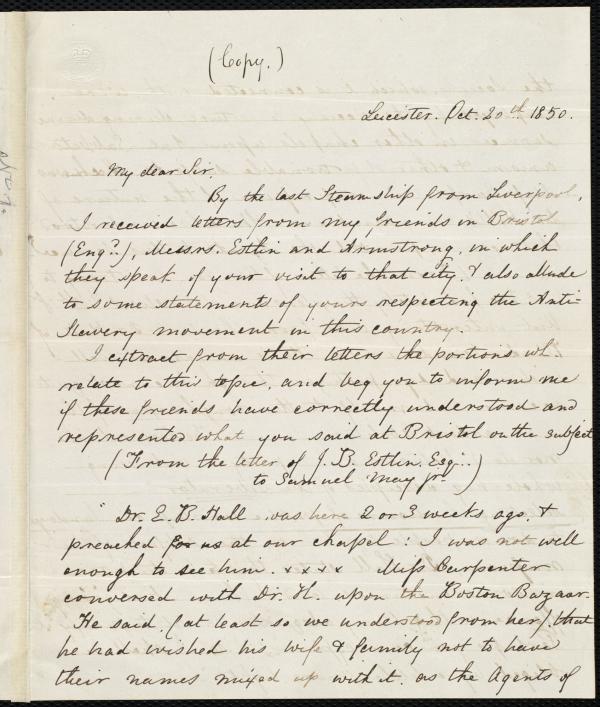 (Copy.)
Leicester. Oct. 20th. 1850.
My dear Sir.
By the last Steamship from Liverpool,
I received letters from my friends in Bristol
(Engd.), Messrs. Estlin and Armstrong, in which
they speak of your visit to that city, & also allude
to some statements of yours respecting the Anti-
Slavery movement in this country.
I extract from their letters the portions wh.
relate to this topic, and beg you to inform me
if these friends have correctly understood and
represented what you said at Bristol on the subject
(From the letter of J. B. Estlin. Esq..
to Samuel May Jr.)
"Dr. E. B. Hall was here 2 or 3 weeks ago, &
preached for us at our chapel: I was not well
enough to see him. x x x x Miss Carpenter
conversed with Dr. H. upon the Boston Bazaar.
He said (at least so we understood from her) that
he had wished his wife & family not to have
their names mixed up with it, as the Agents of